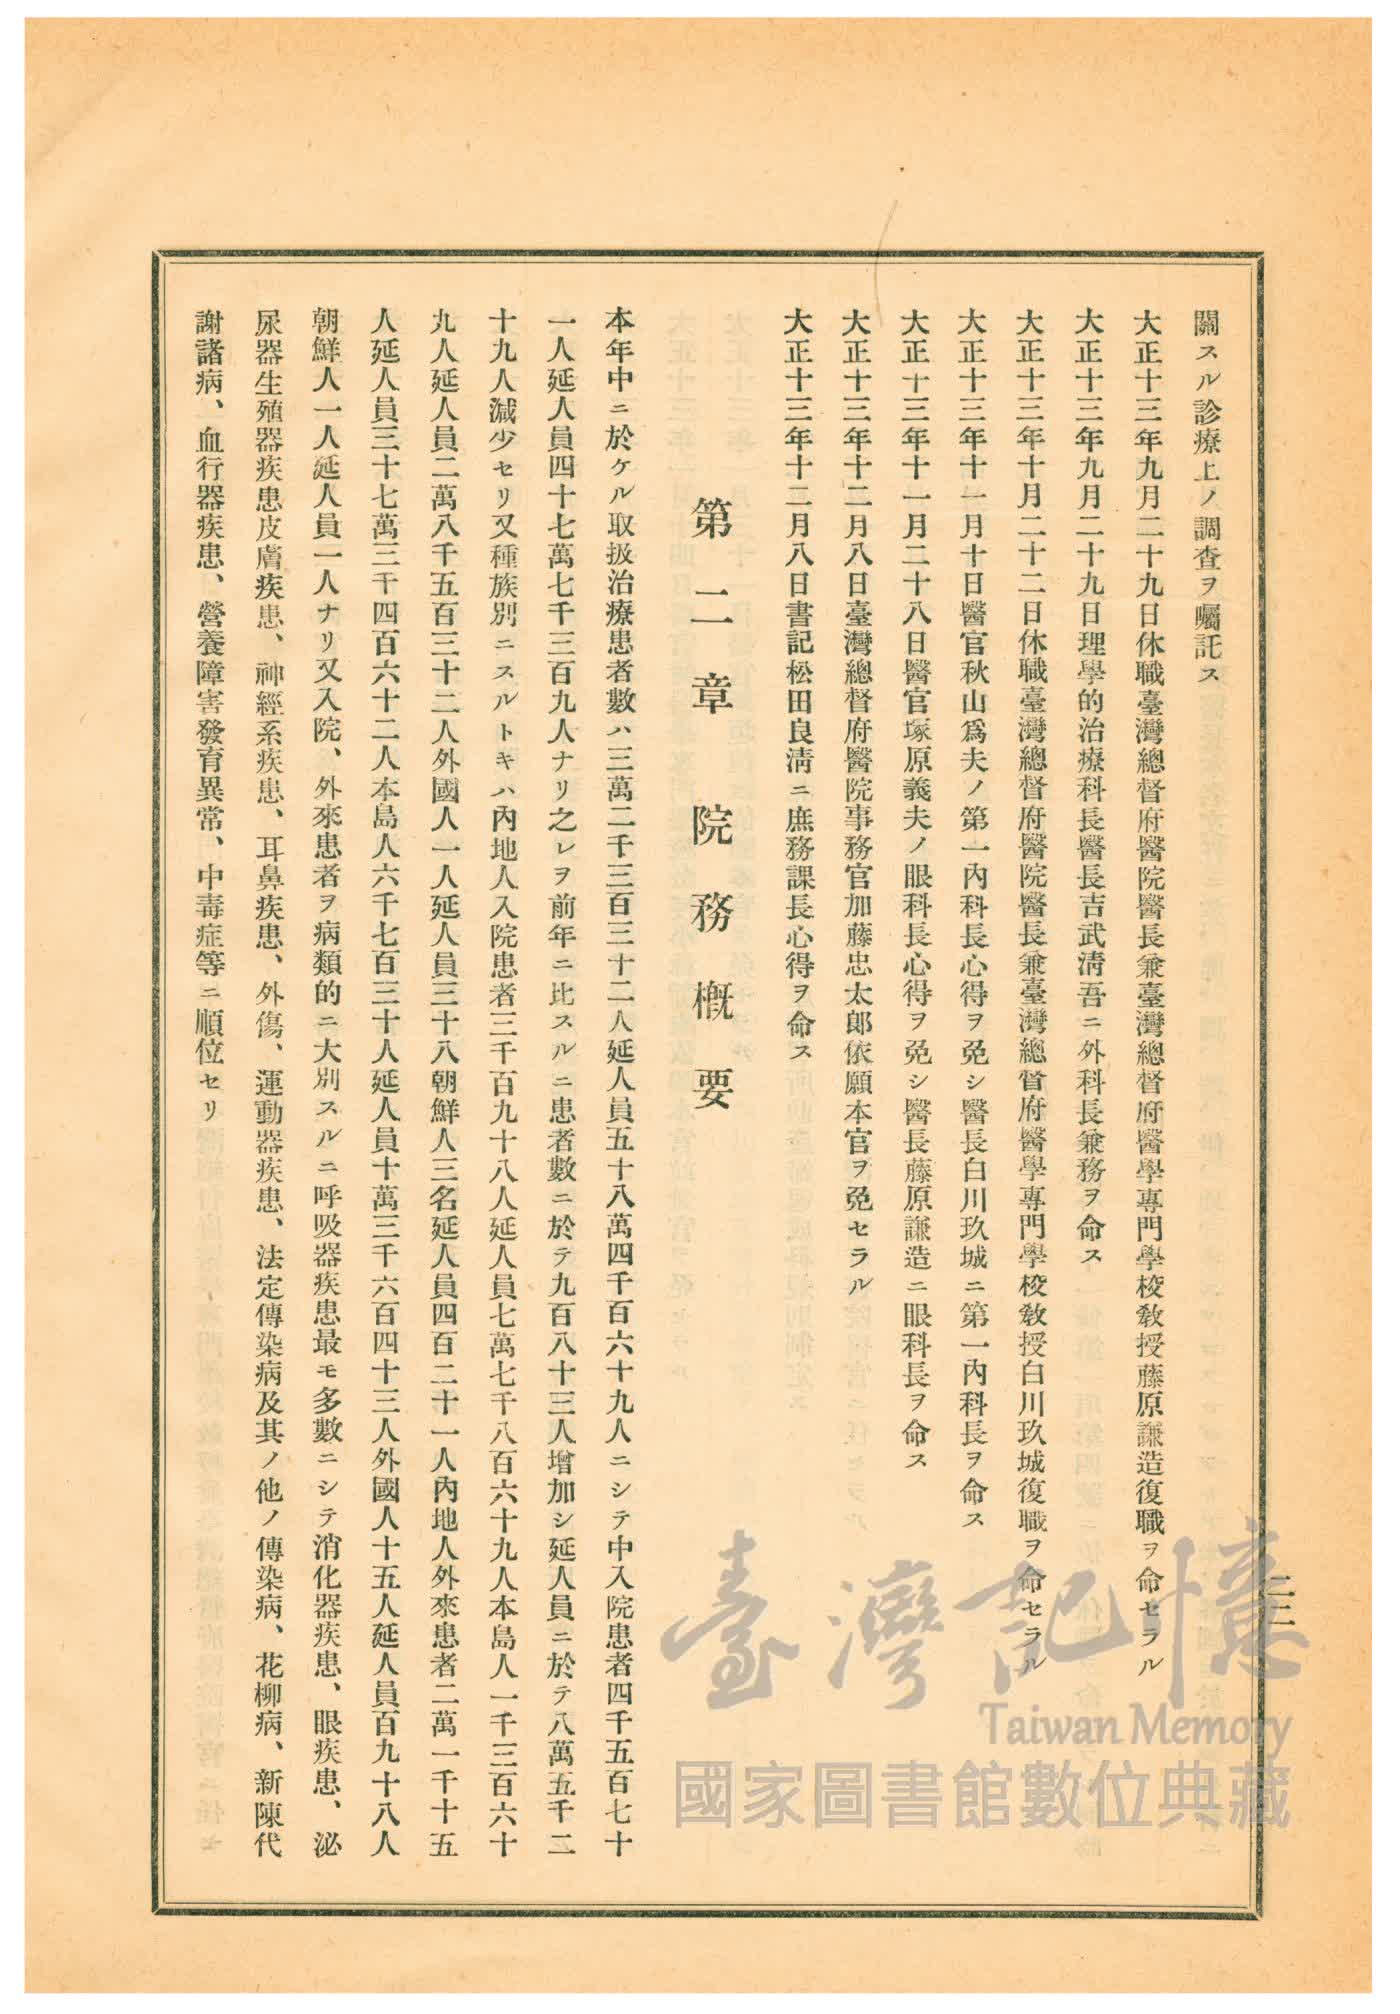 關スル診療上ノ調査ヲ囑託ス
大正十三年九月二十九日休職臺灣總督府醫院醫長兼臺灣總督府醫學專門學校敎授藤原謙造復職ヲ命セラル
大正十三年九月二十九日理學的治療科長醫長吉武淸吾ニ外科長兼務ヲ命ス
大正十三年十月二十二日休職臺灣總督府醫院醫長兼臺灣總督府醫學專門學校敎授白川玖城復職ヲ命セラル
大正十三年十一月十日醫官秋山爲夫ノ第一內科長心得ヲ免シ醫長白川玖城ニ第一內科長ヲ命ス
大正十三年十一月二十八日醫官塚原義夫ノ眼科長心得ヲ免シ醫長藤原謙造ニ眼科長ヲ命ス
大正十三年十二月八日臺灣總督府醫院事務官加藤忠太郎依願本官ヲ免セラル
大正十三年十二月八日書記松田良淸ニ庶務課長心得ヲ命ス
第二章 院務槪要
本年中ニ於ケル取扱治療患者數ハ三萬二千三百三十二人延人員五十八萬四千百六十九人ニシテ中入院患者四千五百七十
一人延人員四十七萬七千三百九人ナリ之レヲ前年ニ比スルニ患者數ニ於テ九百八十三人增加シ延人員ニ於テ八萬五千二
十九人減少セリ又種族別ニスルトキハ內地人入院患者三千百九十八人延人員七萬七千八百六十九人本島人一千三百六十
九人延人員二萬八千五百三十二人外國人一人延人員三十八朝鮮人三名延人員四百二十一人內地人外來患者二萬一千十五
人延人員三十七萬三千四百六十二人本島人六千七百三十人延人員十萬三千六百四十三人外國人十五人延人員百九十八人
朝鮮人一人延人員一人ナリ又入院、外來患者ヲ病類的ニ大別スルニ呼吸器疾患最モ多數ニシテ消化器疾患、眼疾患、泌
尿器生殖器疾患皮膚疾患、神經系疾患、耳鼻疾患、外傷、運動器疾患、法定傳染病及其ノ他ノ傳染病、花柳病、新陳代
謝諸病、血行器疾患、營養障害發育異常、中毒症等ニ順位セリ
二二
臺灣記憶
Taiwan Memory
國家圖書館數位典藏